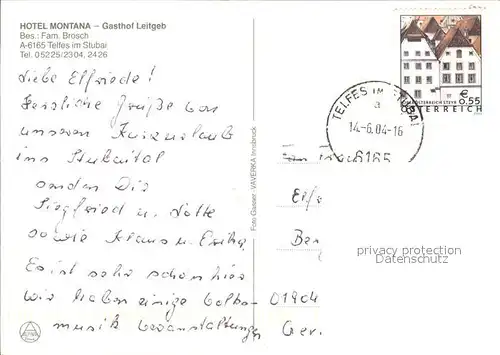 HOTEL MONTANA – Gasthof Leitgeb
Bes.: Fam. Brosch
A-6165 Telfes im Stubai
Tel. 05225/2304, 2426
Liebe Elfriede!
Herzliche Grüße von
unserem Kurzurlaub
ins Stubaital
senden Dir
Siegfried u. Lotte
sowie Klaus u. Erika.
Es ist sehr schön hier
wir haben einige Volks-
musik Veranstaltungen
Foto Gasser - VAVERKA Innsbruck
TELFES IM STUBAI
a
14-6.04-16
6165
€ 6,55
ÖSTERREICH
01904
Ger
privacy protection
Datenschutz